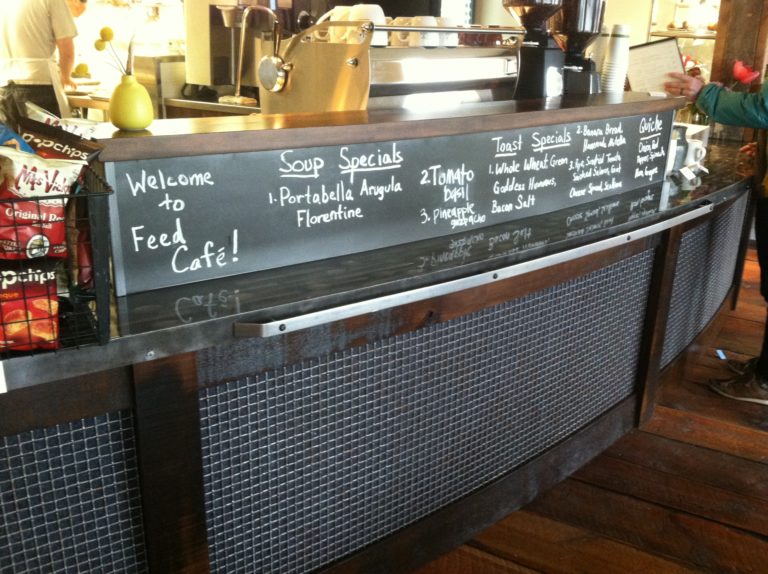 Welcome
to
Feed
Café!
Soup Specials
1. Portabella Arugula
Florentine
2. Tomato
basil
3. Pineapple
gazpacho
Toast Specials
1. Whole Wheat Green
Goddess Hummus,
Bacon Salt
2. Banana Bread,
Homemade Nutella
3. Rye, Seafood Toasts
Smoked Salmon,
Cheese Spread,
Quiche
popchips
Miss Vickie's
Original Re
popchips